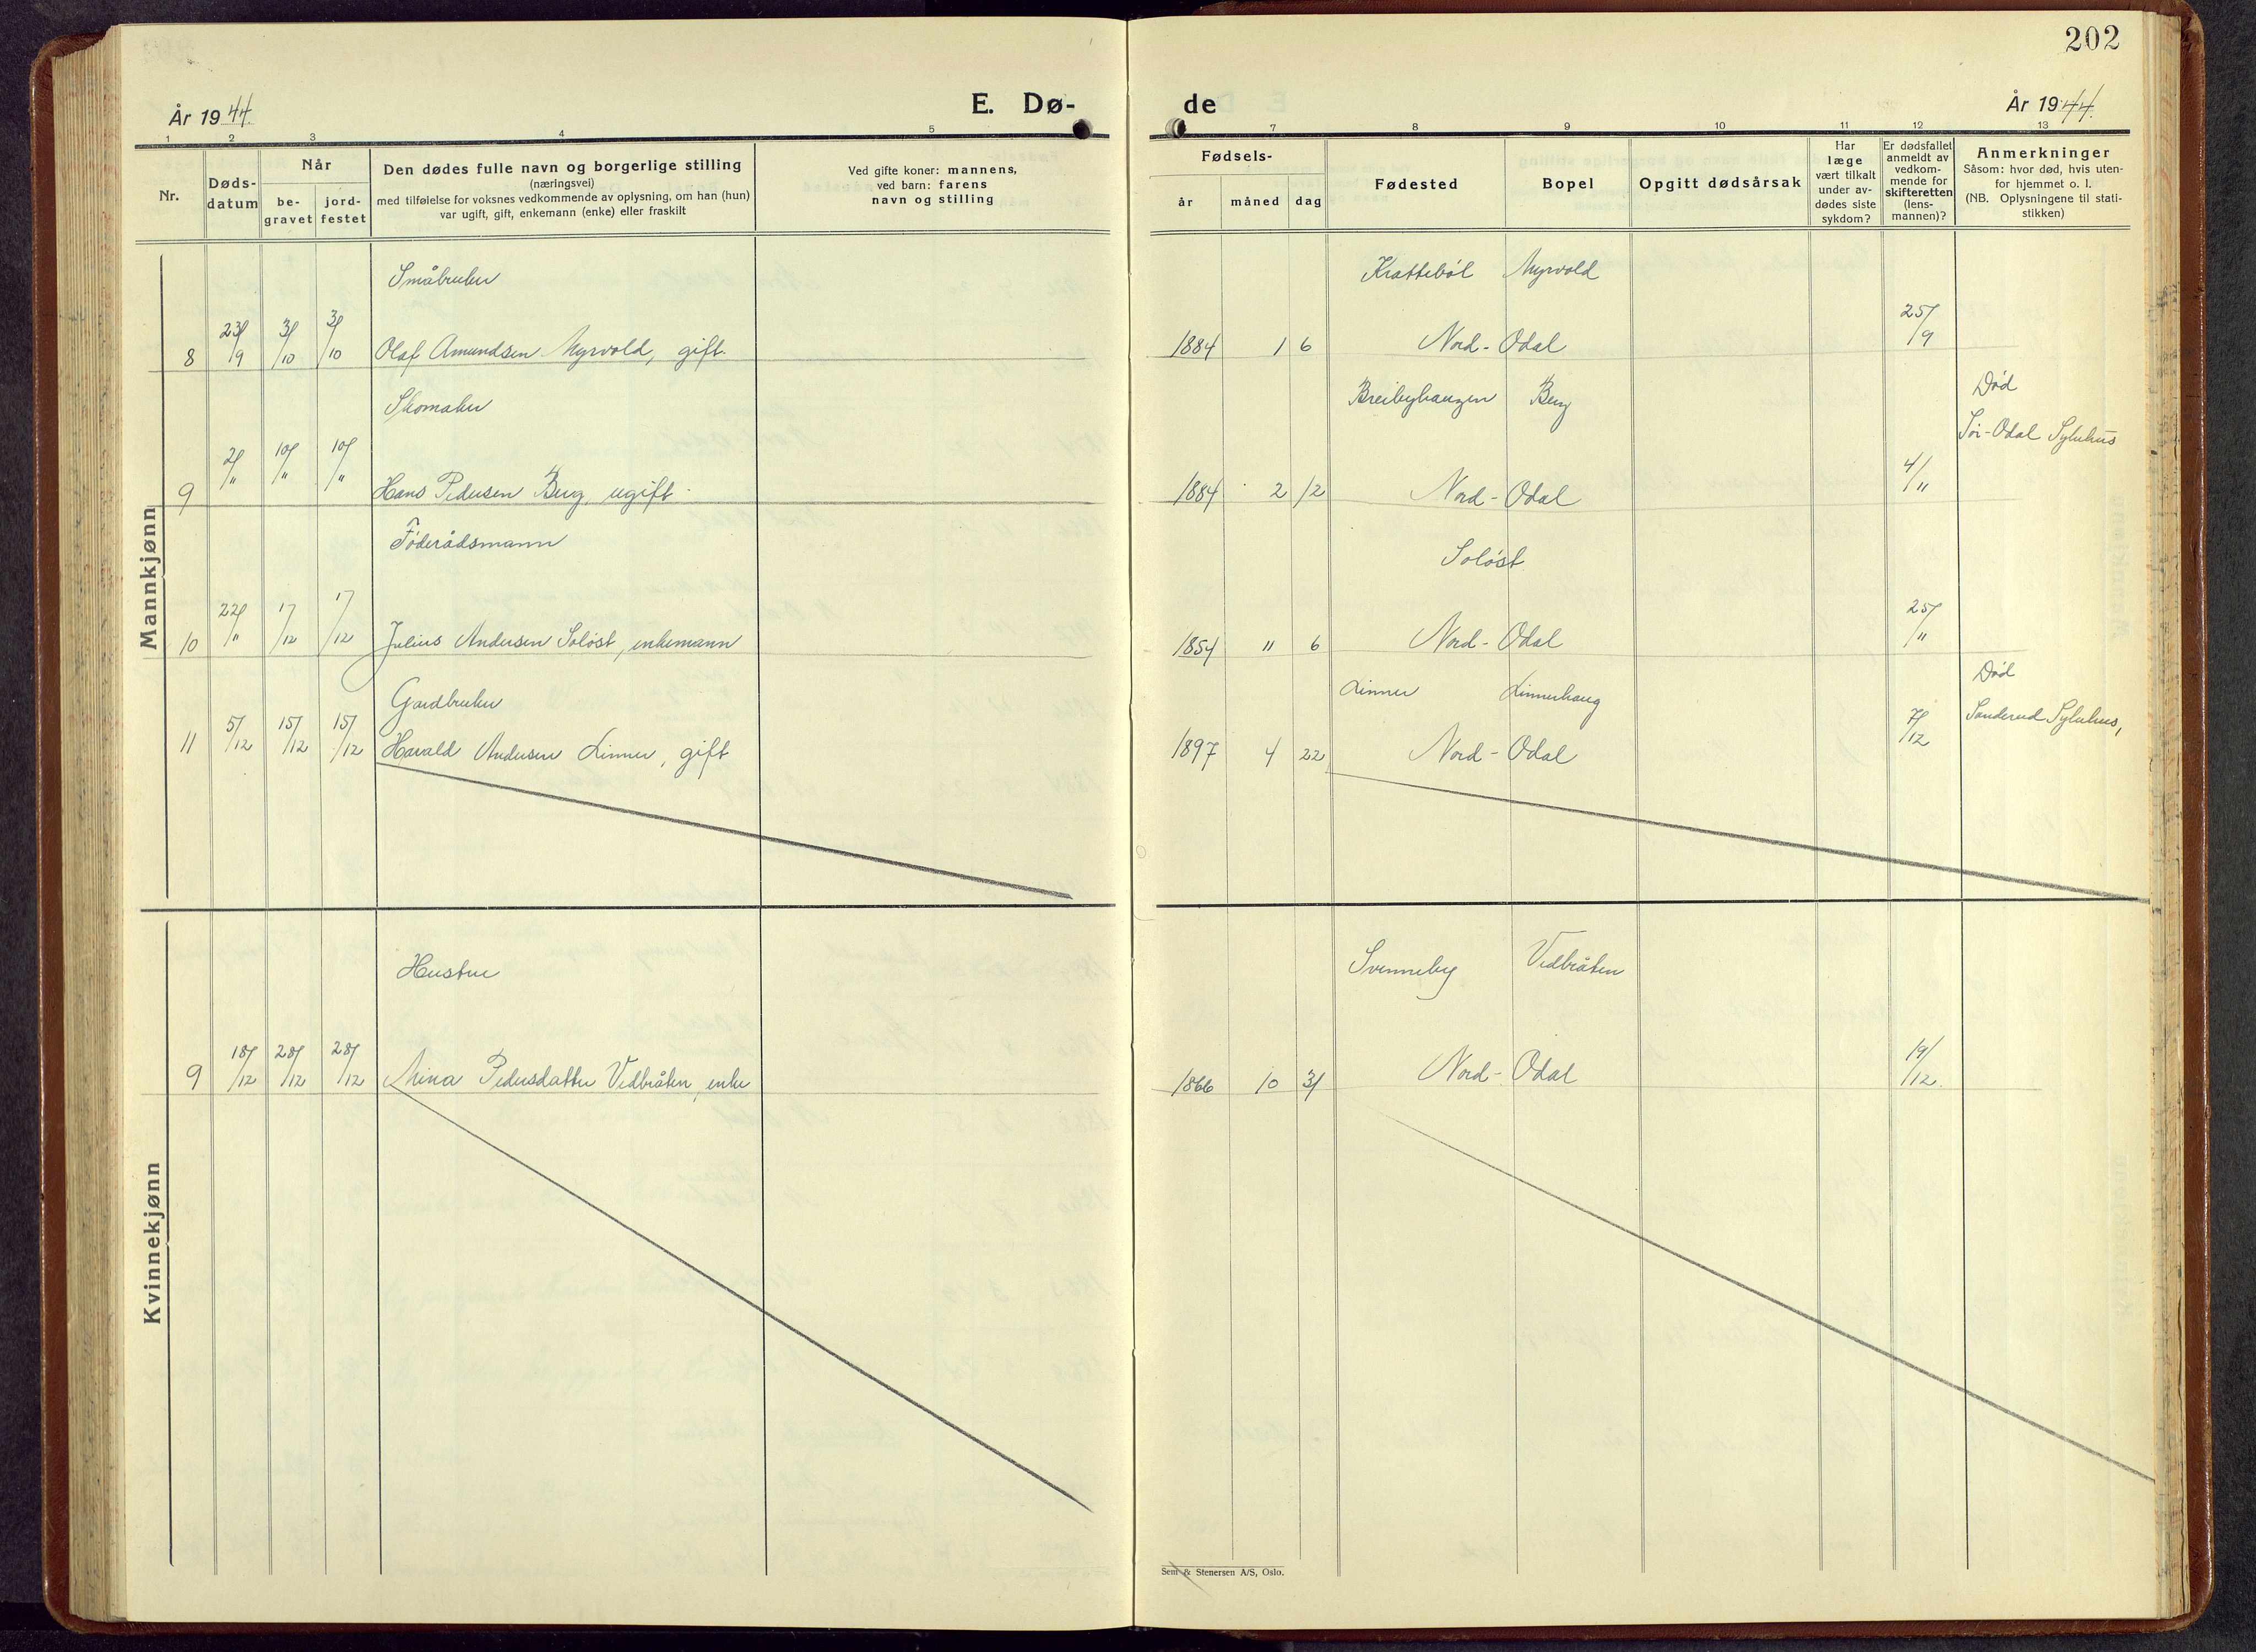 202
År 1944.
E. Dø-
de
År 1944.
1 2 3 4 5
7 8 9 10 11 12 13
Nr.
Døds-
datum
Når
be-
gravet
jord-
festet
Den dødes fulle navn og borgerlige stilling
(næringsvei)
med tilføielse for voksnes vedkommende av oplysning, om han (hun)
var ugift, gift, enkemann (enke) eller fraskilt
Ved gifte koner: mannens,
ved barn: farens
navn og stilling
Fødsels-
år måned dag
Fødested
Bopel
Opgitt dødsårsak
Har
læge
vært tilkalt
under av-
dødes siste
sykdom?
Er dødsfallet
anmeldt av
vedkom-
mende for
skifteretten
(lens-
mannen)?
Anmerkninger
Såsom: hvor død, hvis uten-
for hjemmet o. l.
(NB. Oplysningene til stati-
stikken)
Mannkjønn
Småbruker Kratteból Myrvold
8 23/9 3/10 3/10 Olaf Amundsen Myrvold, gift. 1884 1 6 Nord-Odal 25/9
Skomaker Breibyhaugen Berg Død
Sør-Odal Sykehus
9 2/11 10/11 10/11 Hans Pedersen Berg, ugift 1884 2 12 Nord-Odal 4/11
Føderådsmann Soløst
10 22/11 1/12 1/12 Julius Andersen Soløst, enkemann 1854 11 6 Nord-Odal 25/11
Gardbruker Linner Linnerhaug Død
Sanderud Sykehus,
11 5/12 15/12 15/12 Harald Andersen Linner, gift 1897 4 22 Nord-Odal 7/12
Kvinnekjønn
Hustru Svenneby Vedbråten
9 18/12 28/12 28/12 Mina Pedersdatter Vedbråten, enke 1866 10 31 Nord-Odal 19/12.
Sem & Stenersen A/S, Oslo.